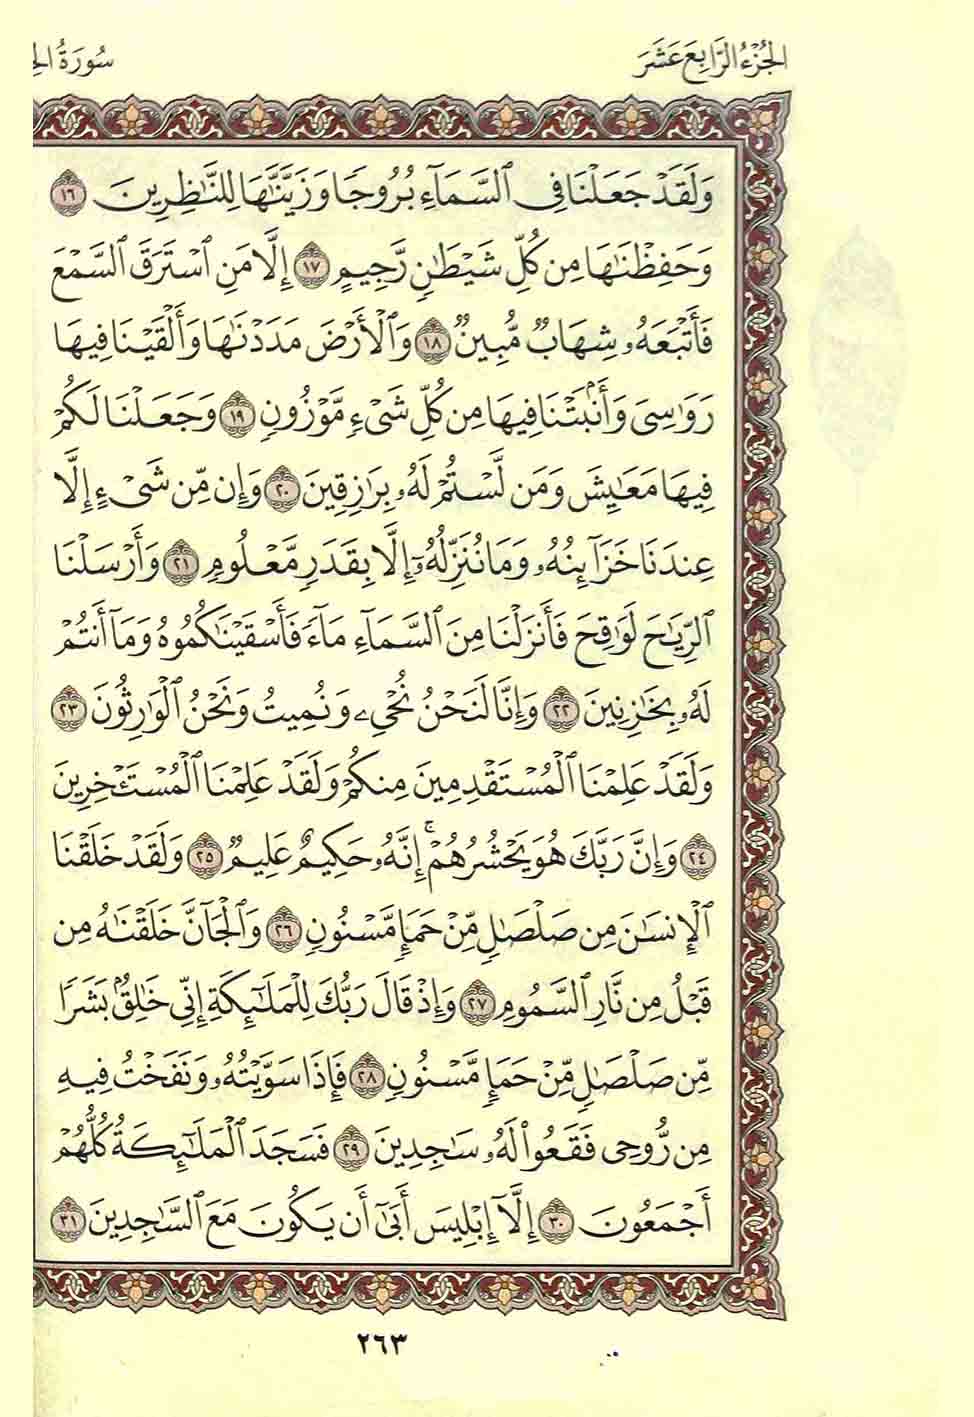 الجُزْءُ الرَّابِعَ عَشَرَ
سُورَةُ
وَلَقَدْ جَعَلْنَا فِي ٱلسَّمَآءِ بُرُوجًا وَزَيَّنَّٰهَا لِلنَّٰظِرِينَ ١٦
وَحَفِظْنَٰهَا مِن كُلِّ شَيْطَٰنٍ رَّجِيمٍ ١٧ إِلَّا مَنِ ٱسْتَرَقَ ٱلسَّمْعَ
فَأَتْبَعَهُۥ شِهَابٌ مُّبِينٌ ١٨ وَٱلْأَرْضَ مَدَدْنَٰهَا وَأَلْقَيْنَا فِيهَا
رَوَٰسِىَ وَأَنۢبَتْنَا فِيهَا مِن كُلِّ شَىْءٍ مَّوْزُونٍ ١٩ وَجَعَلْنَا لَكُمْ
فِيهَا مَعَٰيِشَ وَمَن لَّسْتُمْ لَهُۥ بِرَٰزِقِينَ ٢٠ وَإِن مِّن شَىْءٍ إِلَّا
عِندَنَا خَزَآئِنُهُۥ وَمَا نُنَزِّلُهُۥٓ إِلَّا بِقَدَرٍ مَّعْلُومٍ ٢١ وَأَرْسَلْنَا
ٱلرِّيَٰحَ لَوَٰقِحَ فَأَنزَلْنَا مِنَ ٱلسَّمَآءِ مَآءً فَأَسْقَيْنَٰكُمُوهُ وَمَآ أَنتُمْ
لَهُۥ بِخَٰزِنِينَ ٢٢ وَإِنَّا لَنَحْنُ نُحْىِۦ وَنُمِيتُ وَنَحْنُ ٱلْوَٰرِثُونَ ٢٣
وَلَقَدْ عَلِمْنَا ٱلْمُسْتَقْدِمِينَ مِنكُمْ وَلَقَدْ عَلِمْنَا ٱلْمُسْتَـْٔخِرِينَ
٢٤ وَإِنَّ رَبَّكَ هُوَ يَحْشُرُهُمْ ۚ إِنَّهُۥ حَكِيمٌ عَلِيمٌ ٢٥ وَلَقَدْ خَلَقْنَا
ٱلْإِنسَٰنَ مِن صَلْصَٰلٍ مِّنْ حَمَإٍ مَّسْنُونٍ ٢٦ وَٱلْجَآنَّ خَلَقْنَٰهُ مِن
قَبْلُ مِن نَّارِ ٱلسَّمُومِ ٢٧ وَإِذْ قَالَ رَبُّكَ لِلْمَلَٰٓئِكَةِ إِنِّى خَٰلِقٌۢ بَشَرًا
مِّن صَلْصَٰلٍ مِّنْ حَمَإٍ مَّسْنُونٍ ٢٨ فَإِذَا سَوَّيْتُهُۥ وَنَفَخْتُ فِيهِ
مِن رُّوحِى فَقَعُوا۟ لَهُۥ سَٰجِدِينَ ٢٩ فَسَجَدَ ٱلْمَلَٰٓئِكَةُ كُلُّهُمْ
أَجْمَعُونَ ٣٠ إِلَّآ إِبْلِيسَ أَبَىٰٓ أَن يَكُونَ مَعَ ٱلسَّٰجِدِينَ ٣١
٢٦٣